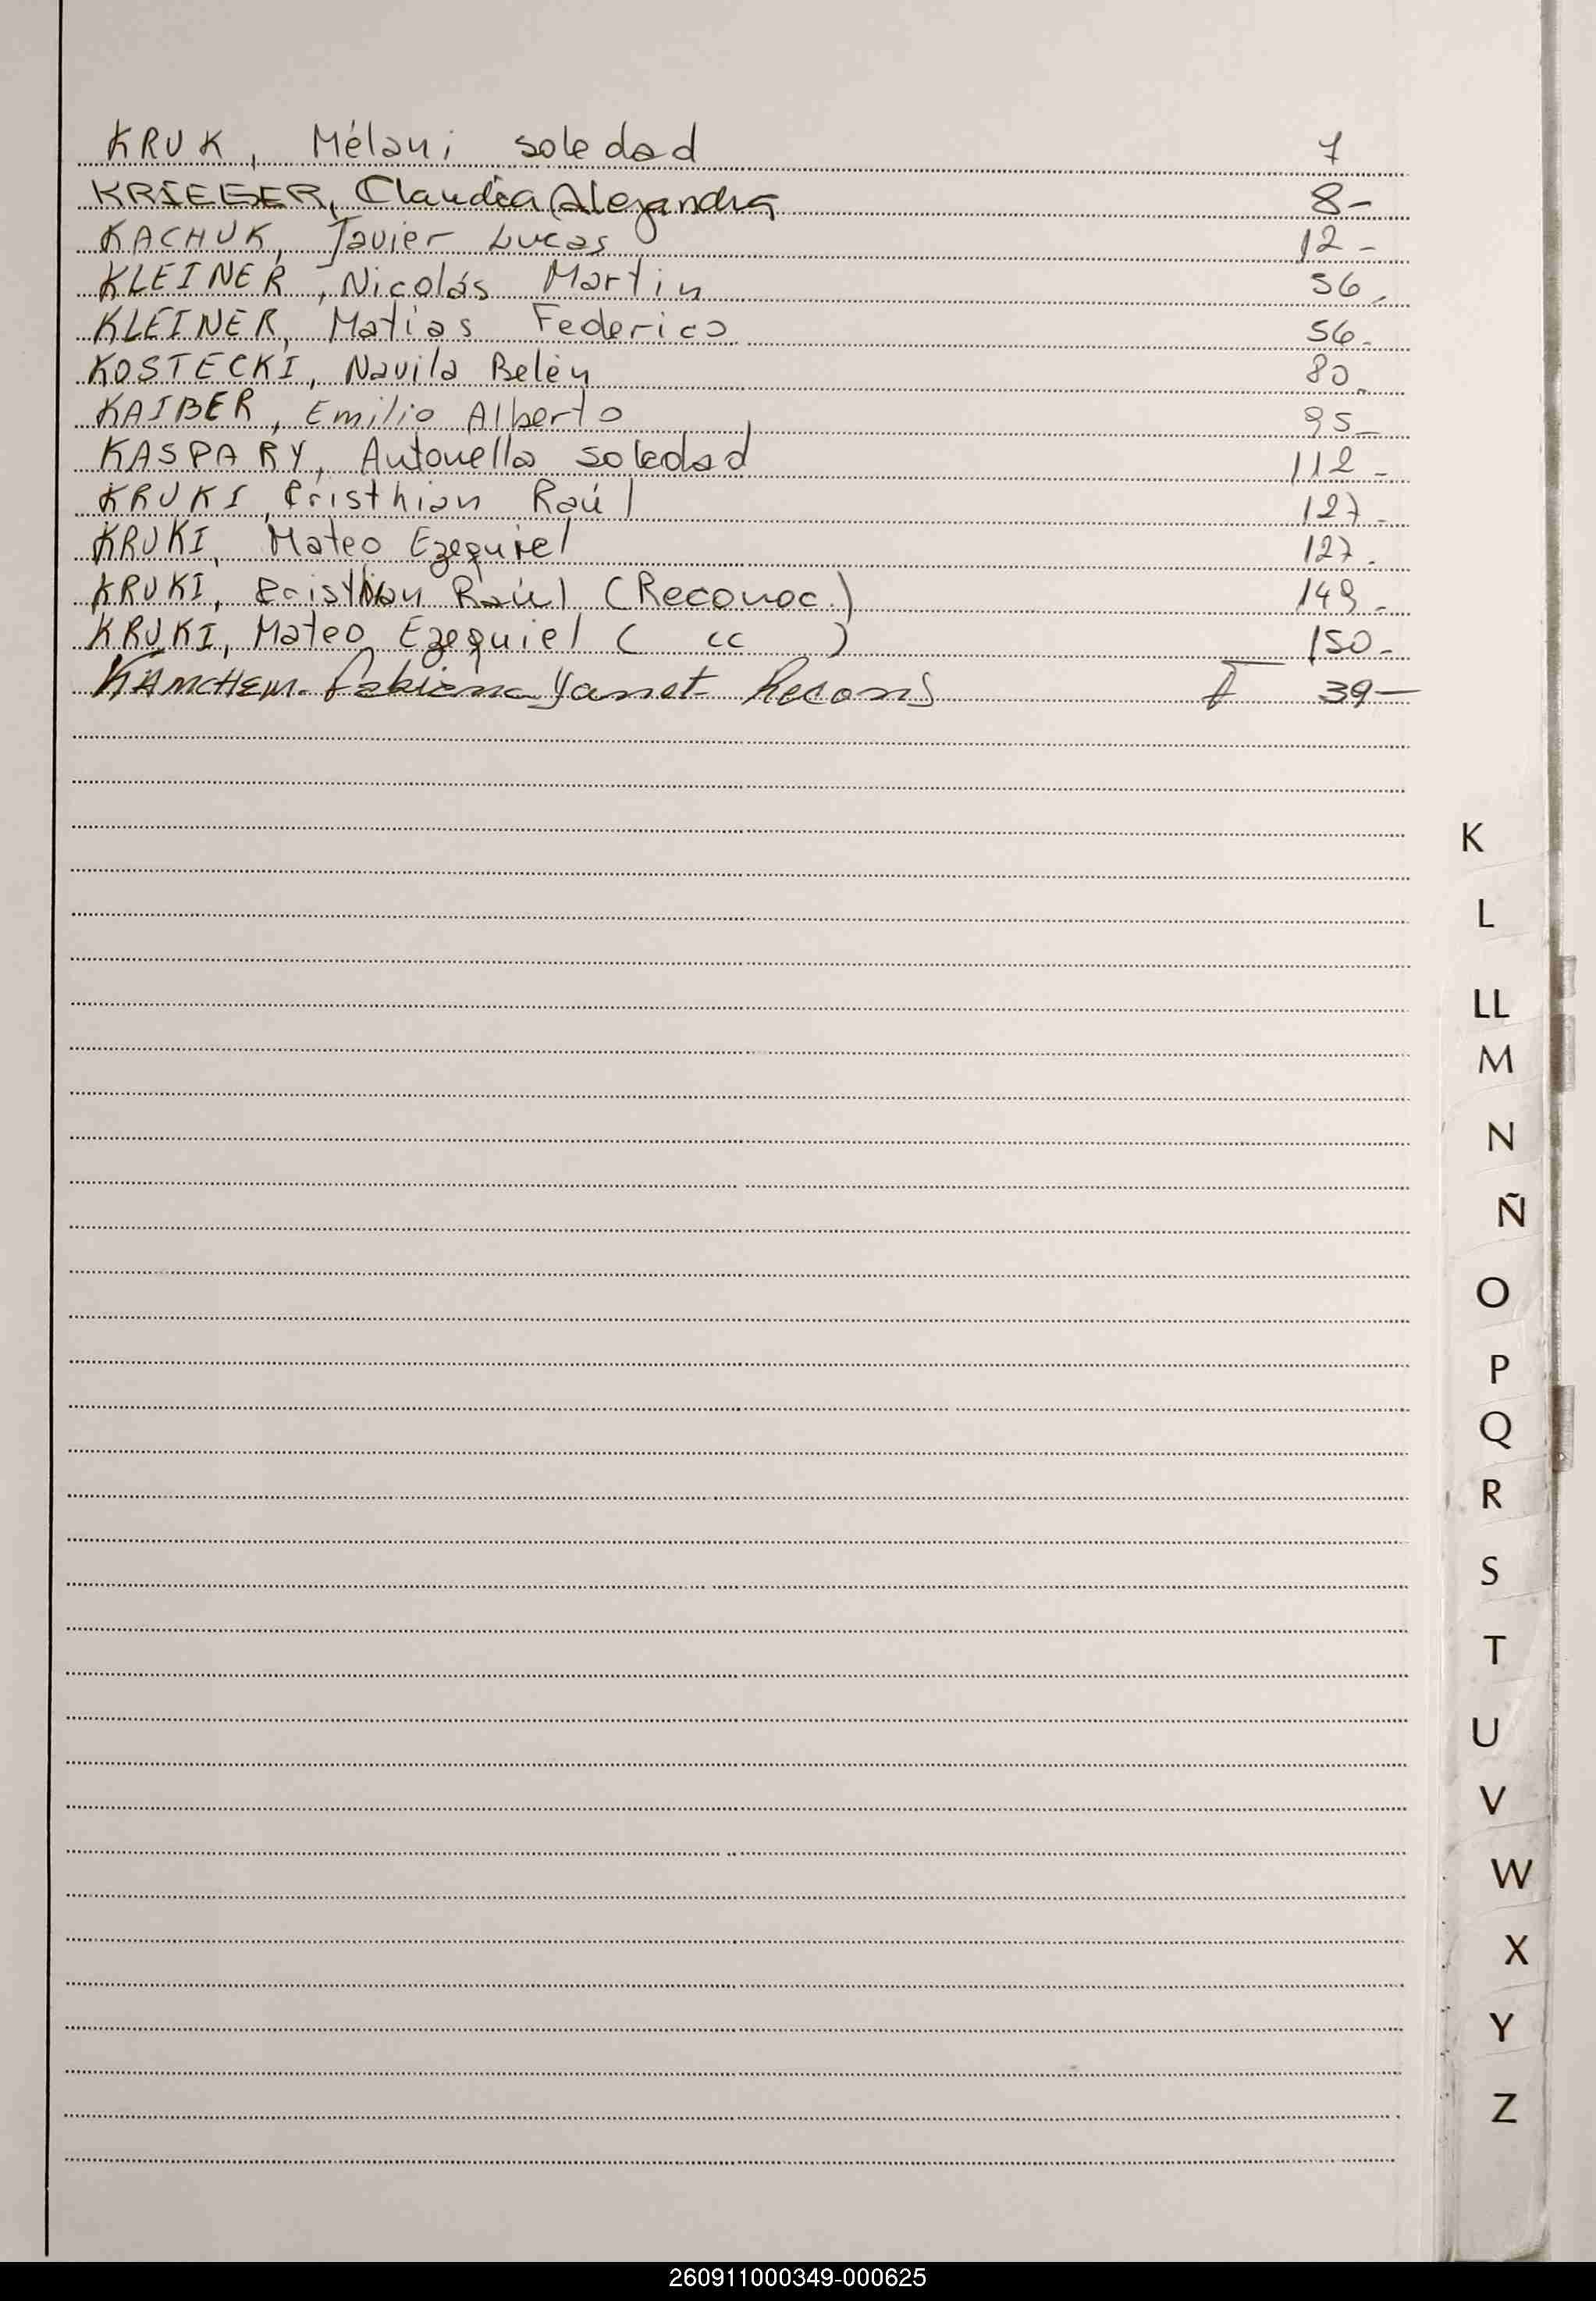 KRUK, Mélani soledad 7
KRIEGER, Claudia Alejandra 8-
KACHUK, Javier Lucas 12-
KLEINER, Nicolás Martin 56-
KLEINER, Matias Federico 56-
KOSTECKI, Navila Belén 80-
KAIBER, Emilio Alberto 95-
KASPARY, Antonella soledad 112-
KRUKI, Cristhian Raúl 127-
KRUKI, Mateo Ezequiel 127-
KRUKI, Cristhian Raúl (Reconoc.) 149-
KRUKI, Mateo Ezequiel ( cc ) 150-
Fabiana Yanet 39-
K
L
LL
M
N
Ñ
O
P
Q
R
S
T
U
V
W
X
Y
Z
260911000349-000625